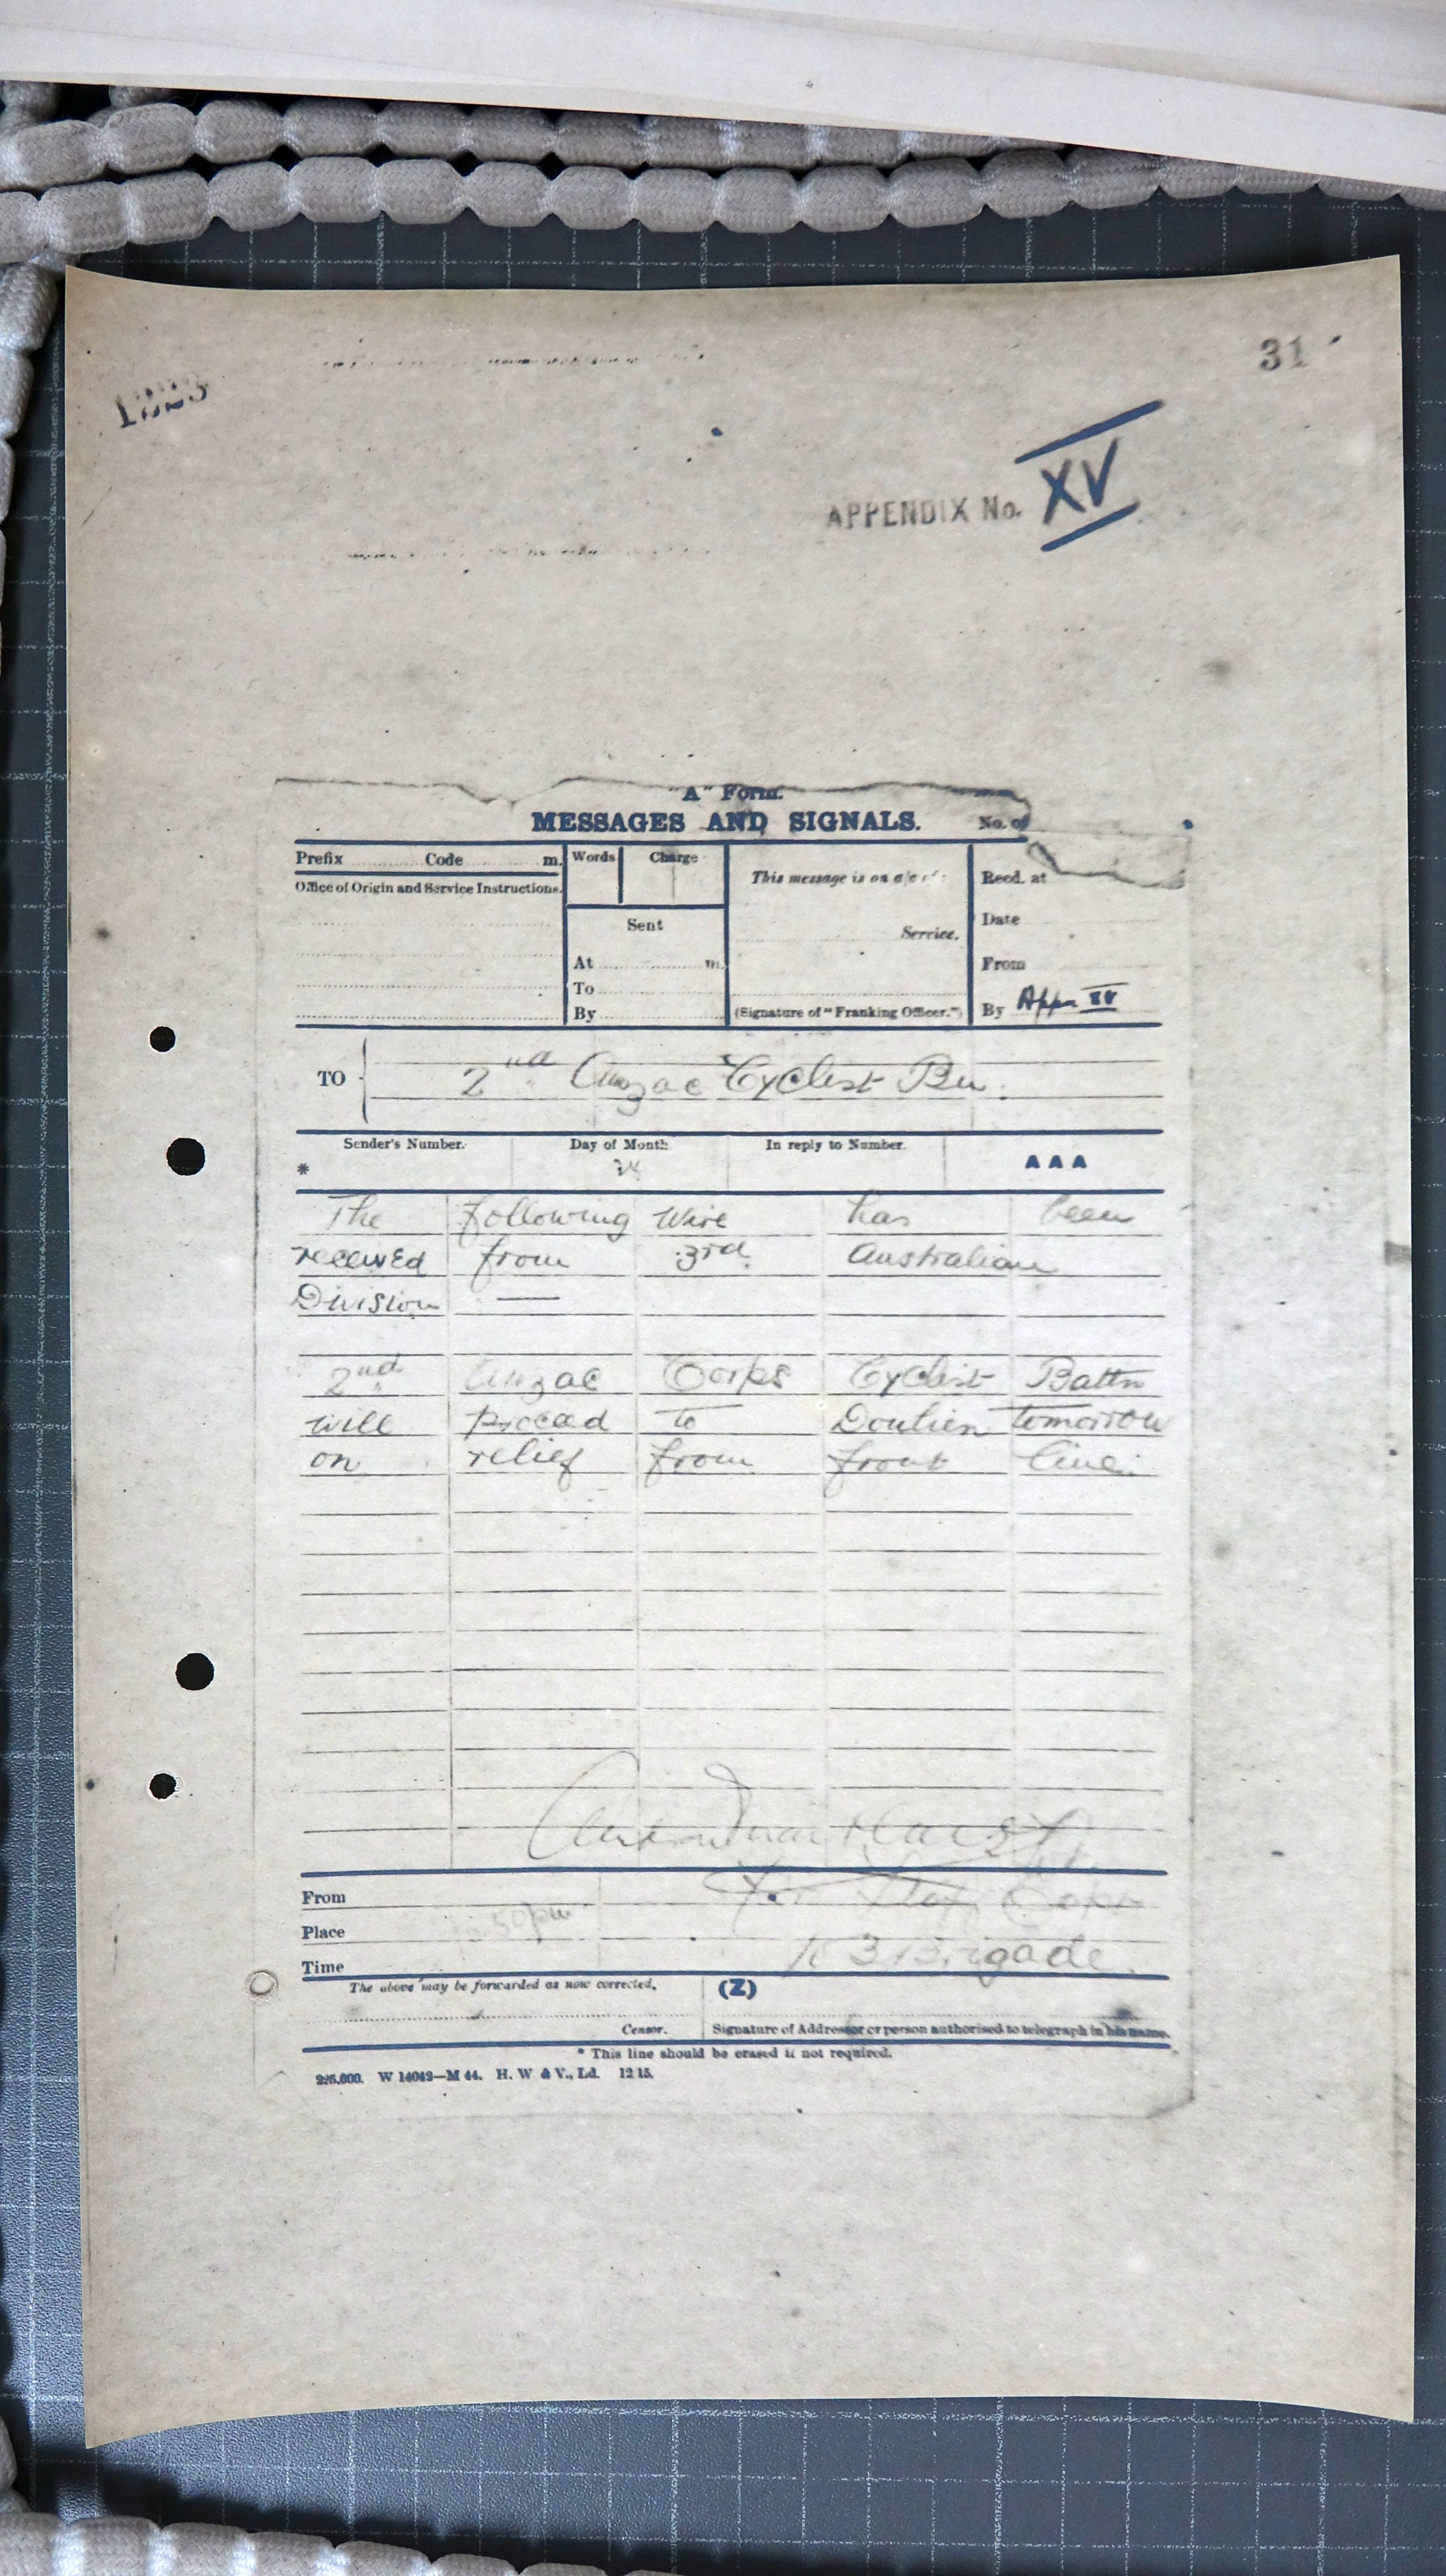 31
APPENDIX No. XV
"A" Form.
MESSAGES AND SIGNALS.
No. of
Prefix Code m.
Words Charge
This message is on a/c of:
Recd. at
Office of Origin and Service Instructions.
Sent
Date
Service.
At m.
From
To
By
(Signature of "Franking Officer.")
By Appx XV
TO
2nd Anzac Cyclist Bn.
Sender's Number.
Day of Month
In reply to Number.
*
24
AAA
The following wire has been
received from 3rd Australian
Division —
2nd Anzac Corps Cyclist Battn
will proceed to Doulieu tomorrow
on relief from front line.
From
for Staf Capt
Place
Time
Brigade.
The above may be forwarded as now corrected.
(Z)
Censor.
Signature of Addressor or person authorised to telegraph in his name.
* This line should be erased if not required.
W 14042—M 44. H. W & V., Ld. 12 15.